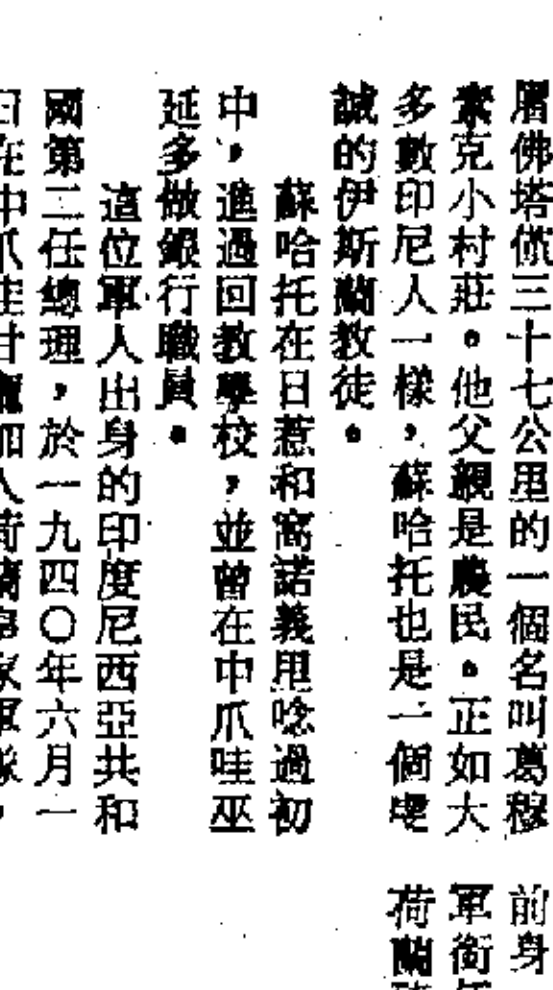 層佛塔僅三十七公里的一個名叫葛穆
素克小村莊。他父親是農民。正如大
多數印尼人一樣，蘇哈托也是一個虔
誠的伊斯蘭教徒。
蘇哈托在日惹和窩諾義里唸過初
中，進過回教學校，並曾在中爪哇巫
延多做銀行職員。
這位軍人出身的印度尼西亞共和
國第二任總理，於一九四〇年六月一
日在中爪哇甘 加入荷蘭皇家軍隊，
前身
軍銜任
荷蘭